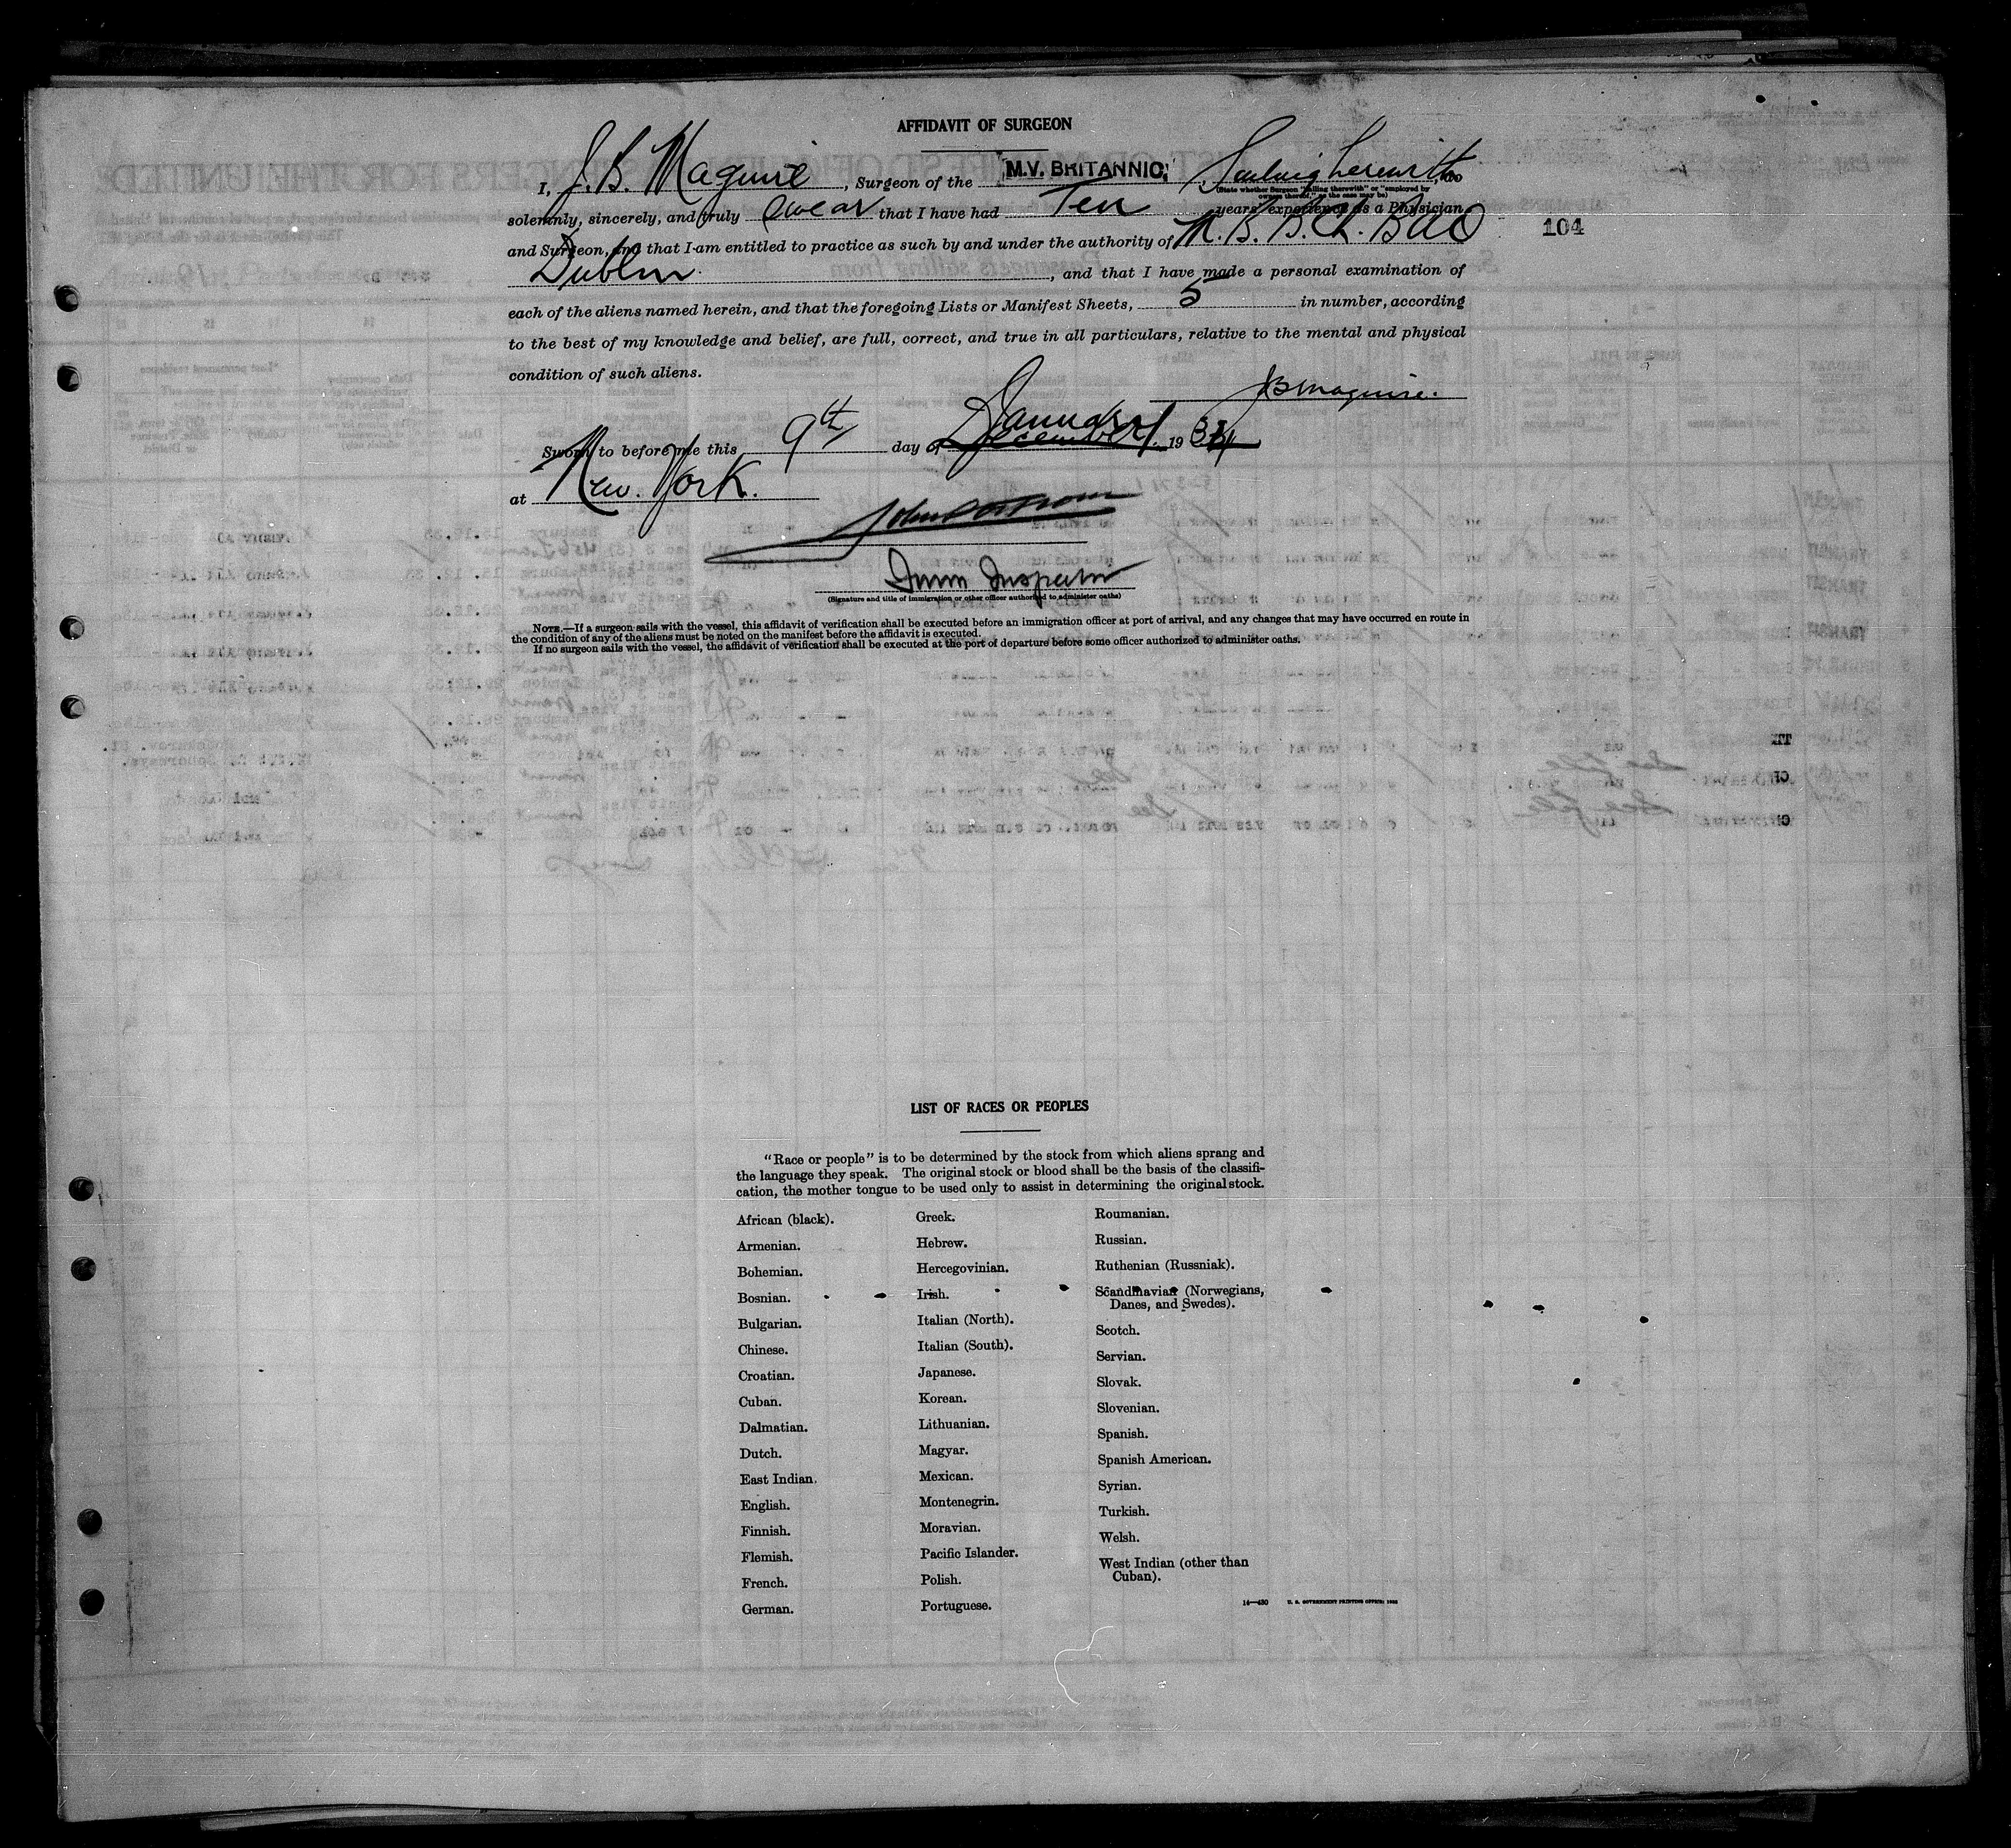 AFFIDAVIT OF SURGEON
I, J. B. Maguire, Surgeon of the M.V. BRITANNIC, Sailing therewith, do
(State whether Surgeon "sailing therewith" or "employed by owners thereof," as the case may be)
solemnly, sincerely, and truly swear that I have had Ten years' experience as a Physician
and Surgeon, and that I am entitled to practice as such by and under the authority of M. B. B. Ch. BAO
104
Dublin, and that I have made a personal examination of
each of the aliens named herein, and that the foregoing Lists or Manifest Sheets, 5 in number, according
to the best of my knowledge and belief, are full, correct, and true in all particulars, relative to the mental and physical
condition of such aliens.
JB Maguire.
Sworn to before me this 9th day of December January 19 34
at New York.
Imm Inspector
(Signature and title of immigration or other officer authorized to administer oaths)
NOTE.—If a surgeon sails with the vessel, this affidavit of verification shall be executed before an immigration officer at port of arrival, and any changes that may have occurred en route in
the condition of any of the aliens must be noted on the manifest before the affidavit is executed.
If no surgeon sails with the vessel, the affidavit of verification shall be executed at the port of departure before some officer authorized to administer oaths.
LIST OF RACES OR PEOPLES
"Race or people" is to be determined by the stock from which aliens sprang and
the language they speak. The original stock or blood shall be the basis of the classifi-
cation, the mother tongue to be used only to assist in determining the original stock.
African (black).
Armenian.
Bohemian.
Bosnian.
Bulgarian.
Chinese.
Croatian.
Cuban.
Dalmatian.
Dutch.
East Indian.
English.
Finnish.
Flemish.
French.
German.
Greek.
Hebrew.
Hercegovinian.
Irish.
Italian (North).
Italian (South).
Japanese.
Korean.
Lithuanian.
Magyar.
Mexican.
Montenegrin.
Moravian.
Pacific Islander.
Polish.
Portuguese.
Roumanian.
Russian.
Ruthenian (Russniak).
Scandinavian (Norwegians,
Danes, and Swedes).
Scotch.
Servian.
Slovak.
Slovenian.
Spanish.
Spanish American.
Syrian.
Turkish.
Welsh.
West Indian (other than
Cuban).
14—430 U. S. GOVERNMENT PRINTING OFFICE: